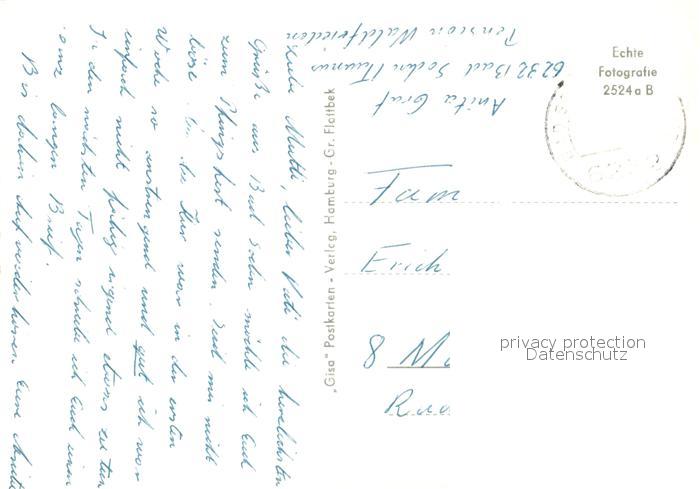 Liebe Mutti, lieber Vati die herzlichsten
Grüße aus Bad Soden möchte ich Euch
zum Pfingstfest senden. Seid mir nicht
böse. Die Kur war in der ersten
Woche so anstrengend und ich war
einfach nicht fähig irgend etwas zu tun
In den nächsten Tagen schreibe ich Euch einen
ganz langen Brief.
Bis dahin Auf wiederhören Eure Anita
"Gisa" Postkarten - Verlag, Hamburg - Gr. Flottbek
Anita Graf
6232 Bad Soden/Taunus
Pension Waldfrieden
Echte
Fotografie
2524 a B
Fam
Erich
8 M
privacy protection
Datenschutz